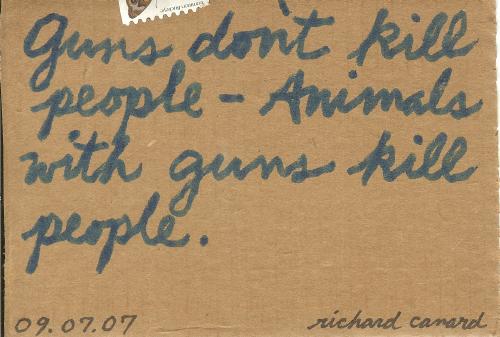 Guns don't kill
people - Animals
with guns kill
people.
09.07.07
richard canard